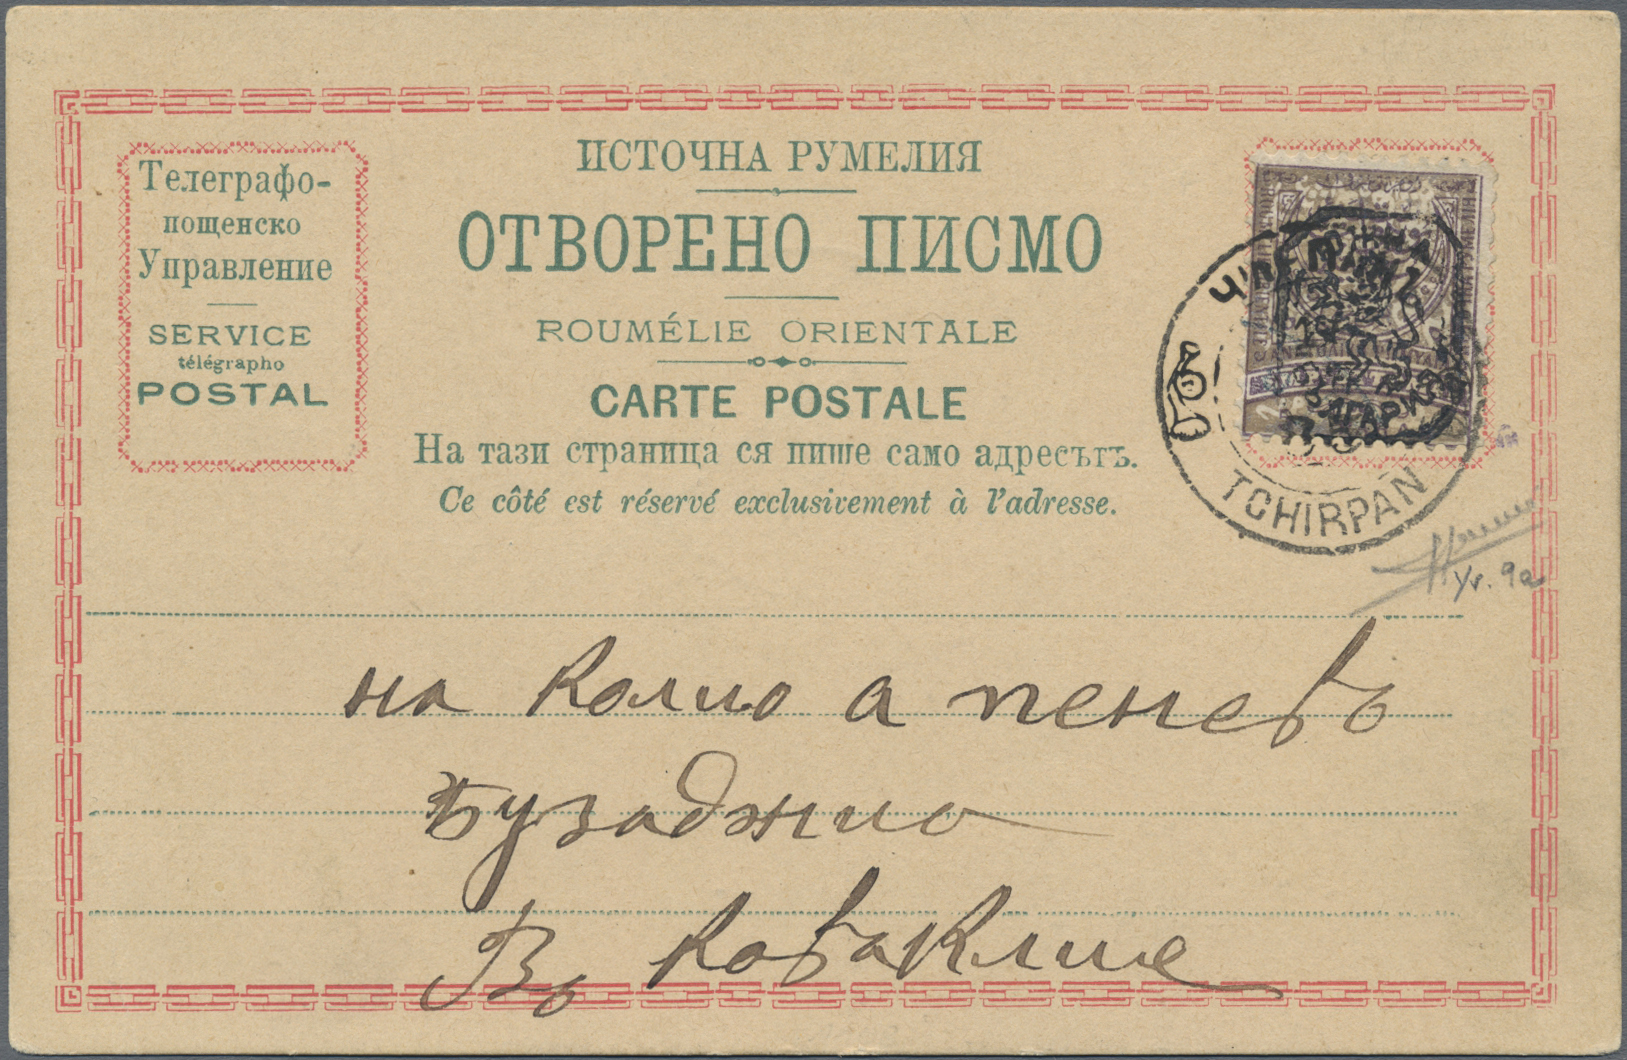 Телеграфо-
пощенско
Управление
SERVICE
télégrapho
POSTAL
ИСТОЧНА РУМЕЛИЯ
ОТВОРЕНО ПИСМО
ROUMÉLIE ORIENTALE
CARTE POSTALE
На тази страница ся пише само адресътъ.
Ce côté est réservé exclusivement à l'adresse.
TCHIRPAN
Yv. 9a
на Колио а пеневъ
Бузаджио
Въ Коваклие